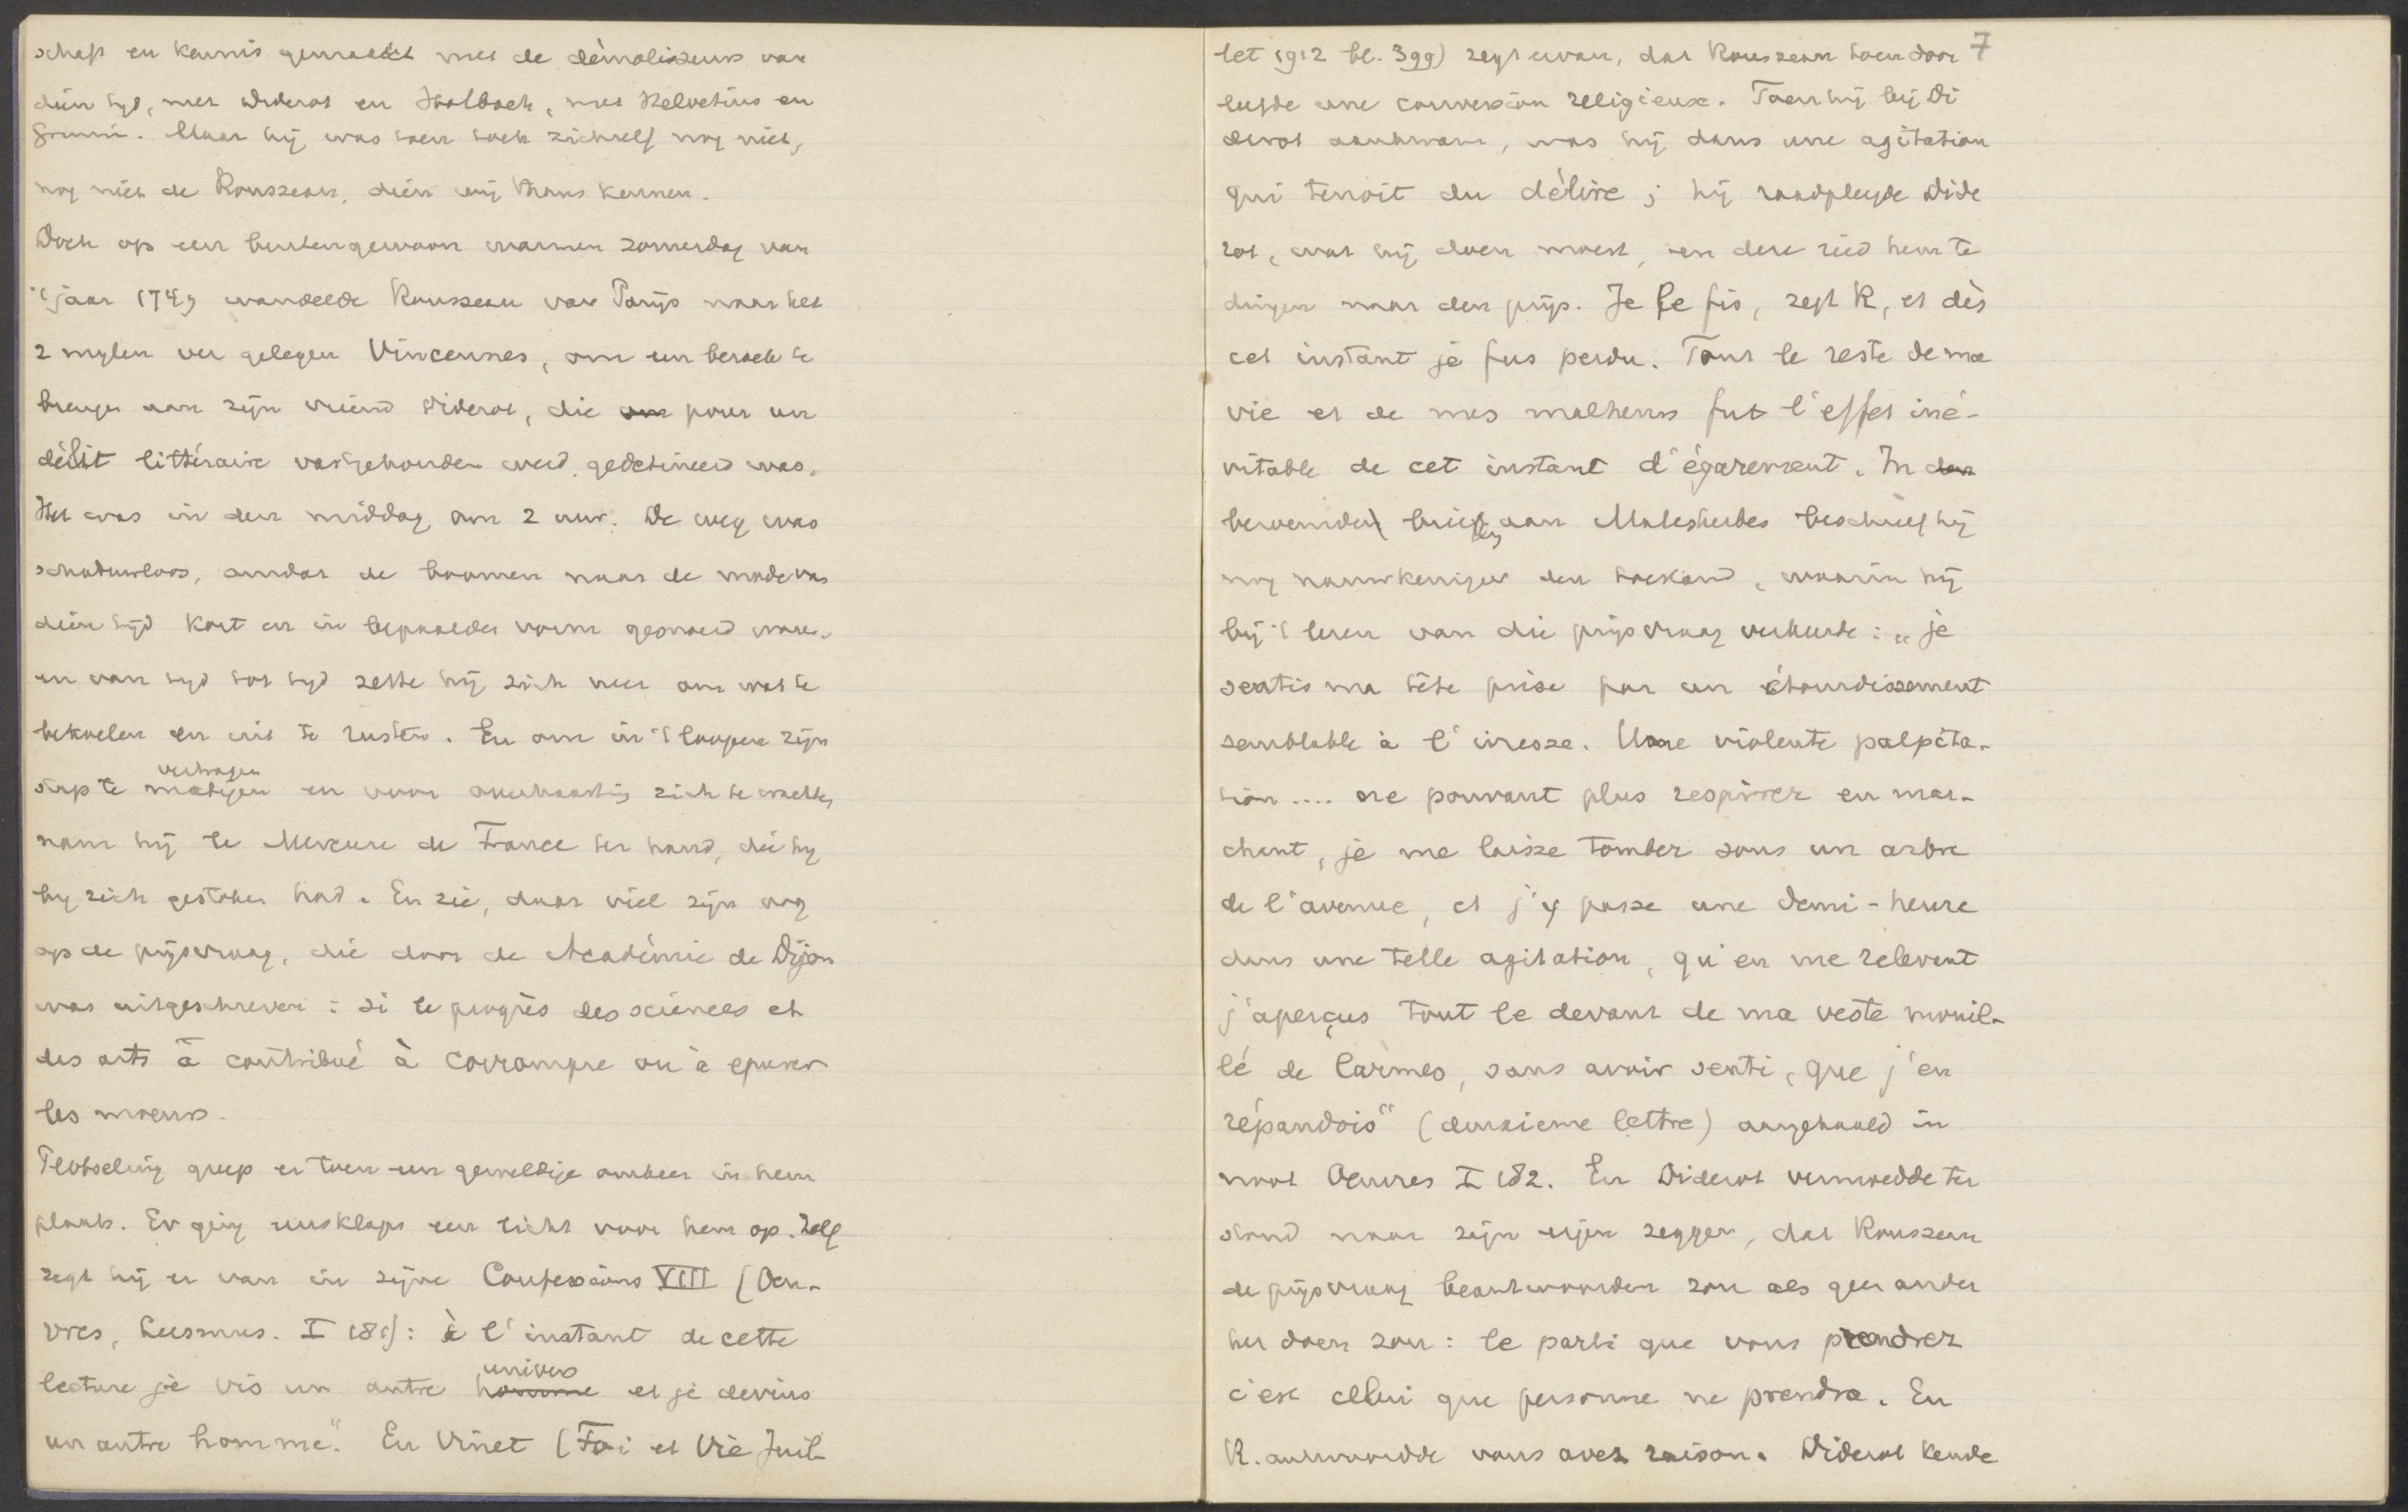 schap en kennis gemaakt met de démolisseurs van
dien tyd, met Diderot en Holbach, met Helvetius en
Grimm. Maar hij was toen toch zichzelf nog niet,
nog niet de Rousseau, dien wij thans kennen.
Doch op een buitengewoon warmen zomerdag van
't jaar 1749 wandelde Rousseau van Parijs naar het
2 mylen ver gelegen Vincennes, om een bezoek te
brengen aan zijn vriend Diderot, die om pour un
délit littéraire vastgehouden werd, gedetineerd was.
Het was in den middag om 2 uur. De weg was
schaduwloos, omdat de boomen naar de mode van
dien tijd kort en in bepaalden vorm gesnoeid waren.
en van tyd tot tyd zette hij zich neer om wat te
bekoelen en uit te rusten. En om in 't loopen zijn
vertragen
stap te matigen en voor overhaasting zich te wachten,
nam hij le Mercure de France ter hand, die hy
by zich gestoken had. En zie, daar viel zijn oog
op de prijsvraag, die door de Académie de Dijon
was uitgeschreven: si le progrès des sciences et
des arts a contribué à corrompre ou à epurer
les moeurs.
Plotseling greep er toen een geweldige omkeer in hem
plaats. Er ging eensklaps een licht voor hem op. Zelf
zegt hij er van in zijne Confessions VIII (Oeu-
vres, Lausanne. I 181): à l'instant de cette
univers
lecture je vis un autre homme et je devins
un autre homme". En Vinet (Foi et Vie Juil-
7
let 1912 bl. 399) zegt ervan, dat Rousseau toen door
leefde une conversion religieuse. Toen hij bij Di
derot aankwam, was hij dans une agitation
qui tenoit du délire; hij raadpleegde Dide
rot, wat hij doen moest, en deze ried hem te
dingen naar den prijs. Je le fis, zegt R, et dès
cet instant je fus perdu. Tout le reste de ma
vie et de mes malheurs fut l'effet iné-
vitable de cet instant d'égarement. In den
beroemden brief aan Malesherbes beschreef hij
nog nauwkeuriger den toestand, waarin hij
bij 't lezen van die prijsvraag verkeerde: „je
sentis ma tête prise par un étourdissement
semblable à l'ivresse. Une violente palpita-
tion .... ne pouvant plus respirer en mar-
chant, je me laisse tomber sous un arbre
de l'avenue, et j'y passe une demi-heure
dans une telle agitation, qu'en me relevant
j'aperçus tout le devant de ma veste mouil-
lé de larmes, sans avoir senti, que j'en
répandois" (deuxieme lettre) aangehaald in
noot Oeuvres I 182. En Diderot vermoedde ter
stond naar zijn eigen zeggen, dat Rousseau
de prijsvraag beantwoorden zou als geen ander
het doen zou: le parti que vous prendrez
c'est celui que personne ne prendra. En
R. antwoordde vous avez raison. Diderot kende